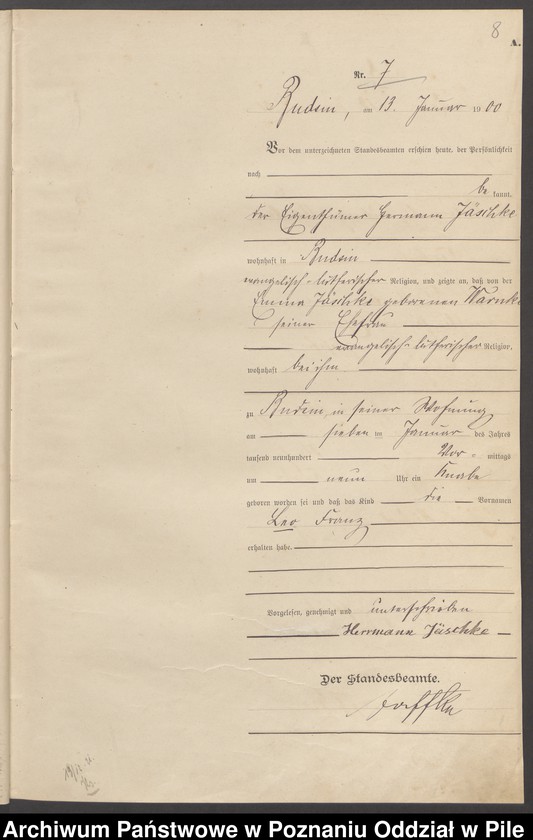 8
A.
Nr. 7
Rudsin, am 13. Januar 1900
Vor dem unterzeichneten Standesbeamten erschien heute, der Persönlichkeit
nach
be kannt,
der Eigenthümer Hermann Jäschke
wohnhaft in Rudsin
evangelisch-lutherischer Religion, und zeigte an, daß von der
Emma Jäschke geborenen Warnke
seiner Ehefrau
evangelisch-lutherischer Religion,
wohnhaft bei ihm
zu Rudsin in seiner Wohnung
am sieben ten Januar des Jahres
tausend neunhundert Vor mittags
um neun Uhr ein Knabe
geboren worden sei und daß das Kind die Vornamen
Leo Franz
erhalten habe.
Vorgelesen, genehmigt und unterschrieben
Herrmann Jäschke
Der Standesbeamte.
Archiwum Państwowe w Poznaniu Oddział w Pile